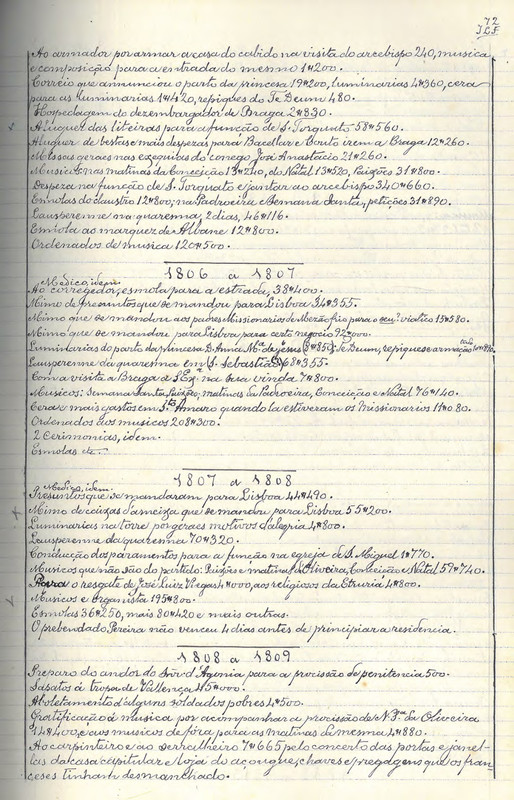 72
J.L.F.
Ao armador por armar a casa do cabido na visita do arcebispo 240, musica
e composição para a entrada do mesmo 1$200.
Correio que annunciou o parto da princeza 19$200, luminarias 4$360, cera
para as luminarias 14$420, repiques do Te Deum 480.
Hospedagem do dezembargador de Braga 2$830.
Aluguer das liteiras para a função de S. Torquato 58$560.
Aluguer de bestas e mais despezas para Bacellar e Couto irem a Braga 12$260.
Missas geraes nas exequias do conego José Anastacio 21$260.
Musicos nas matinas da Conceição 13$240, do Natal 13$520, Paixões 31$800.
Despeza na função de S. Torquato e jantar ao arcebispo 340$660.
Esmolas do claustro 12$800, na Padroeira e Semana Santa, petições 31$890.
Lausperenne na quaresma, 2 dias, 46$116.
Esmola ao marquez de Albane 12$800.
Ordenados de musica 120$500.
1806 a 1807
Medico, idem.
Ao corregedor, esmola para a estrada, 38$400.
Mimo de presuntos que se mandou para Lisboa 34$355.
Mimo que se mandou aos padres Missionarios de Mezão frio para o seu viatico 15$580.
Mimo que se mandou para Lisboa para certo negocio 92$000.
Luminarias do parto da princeza D. Anna Mª de Jesus 8$850, Te Deum, repiques e armação
Lausperenne da quaresma em S. Sebastião 68$355.
Com a visita a Braga a S. Exª na boa vinda 7$800.
Musicos: Semana Santa, Paixões, matinas da Padroeira, Conceição e Natal 76$140.
Cera e mais gastos em Stº Amaro quando lá estiveram os Missionarios 11$080.
Ordenados aos musicos 208$300.
2 Cerimonias, idem.
Esmolas etc.
1807 a 1808
Medico, idem.
Presuntos que se mandaram para Lisboa 44$490.
Mimo de caixas d'ameixa que se mandou para Lisboa 55$200.
Luminarias na torre por geraes motivos d'alegria 4$800.
Lausperenne da quaresma 70$320.
Conducção dos paramentos para a função na egreja de S. Miguel 1$770.
Musicos que não são do partido: Paixões e matinas d'Oliveira, Conceição e Natal 57$740.
Para o resgate de José Luiz Viegas 4$000, aos religiosos da Etruria 4$800.
Musicos e organista 195$800.
Esmolas 36$250, mais 80$420 e mais outras.
O prebendado Pereira não venceu 4 dias antes de principiar a residencia.
1808 a 1809
Preparo do andor do Snr d'Agonia para a procissão de penitencia 500.
Sapatos á tropa de Vallença 45$000.
Aboletamento d'alguns soldados pobres 4$500.
Gratificação á musica por acompanhar a procissão de N. Sª da Oliveira
14$400, e aos musicos de fóra para as matinas da mesma 4$880.
Ao carpinteiro e ao serralheiro 7$665 pelo concerto das portas e janel-
las da casa capitular e loja do açougue, chaves e pregagens que os fran-
ceses tinham desmanchado.